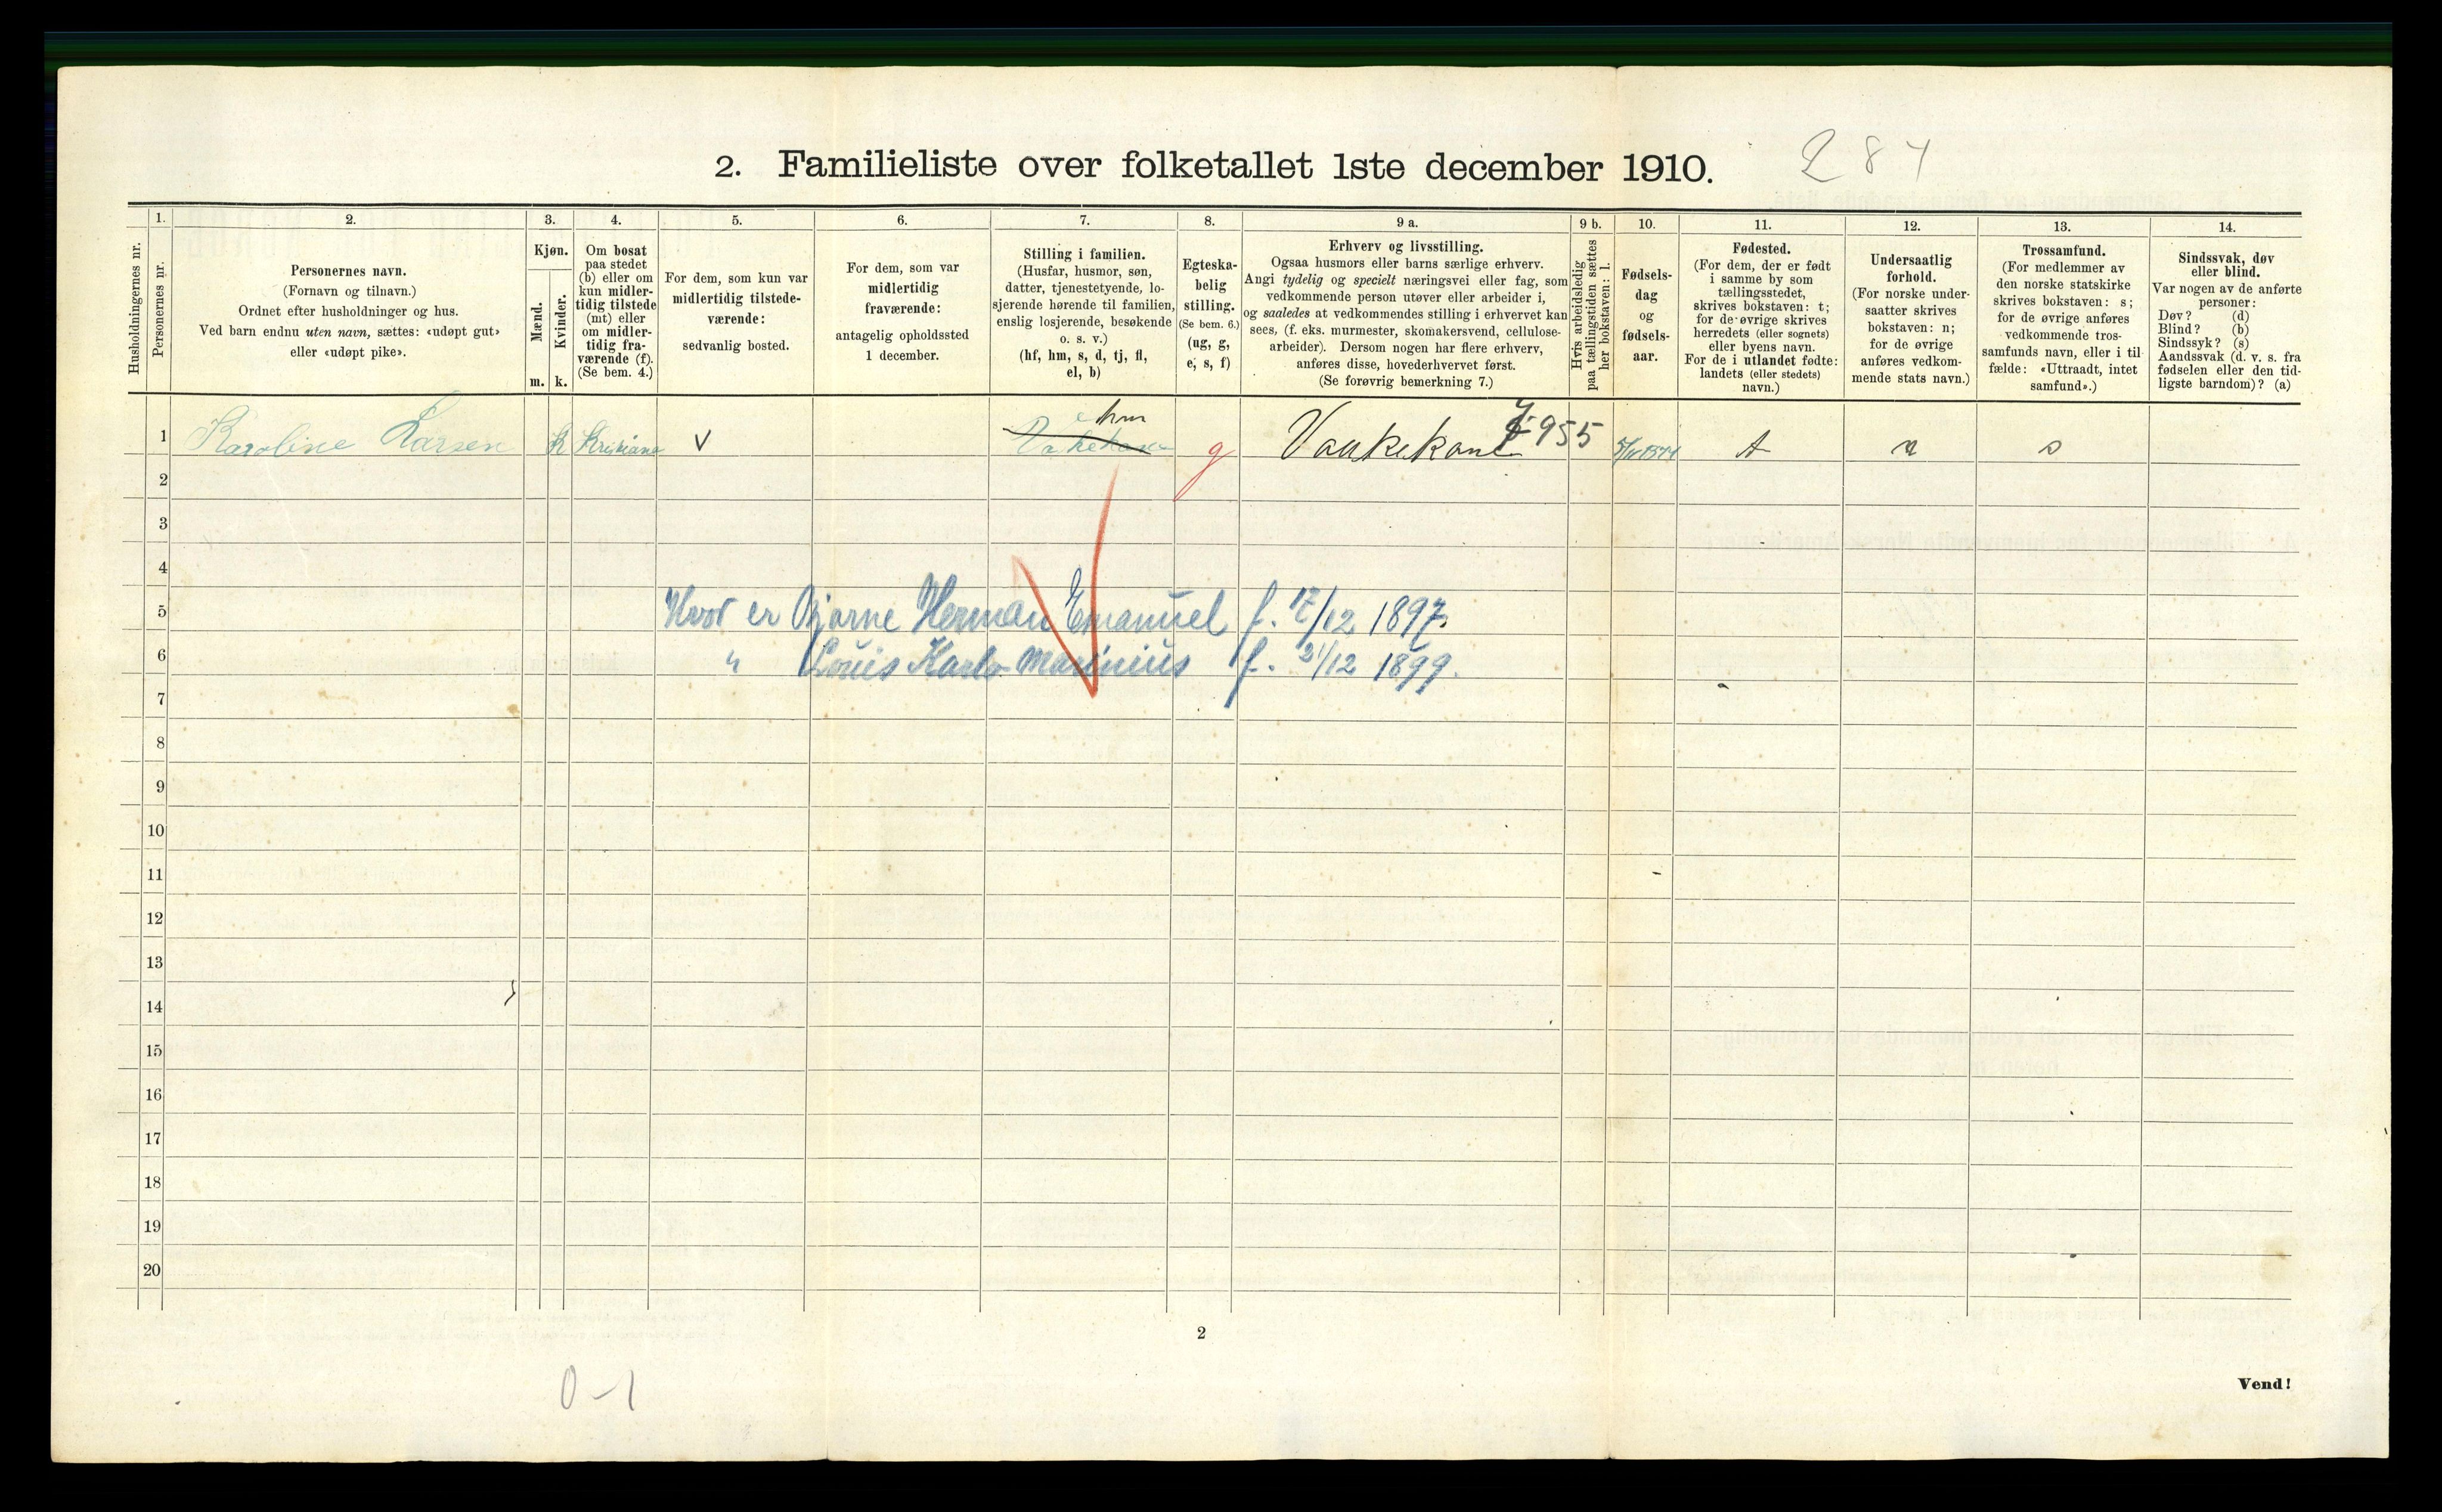 2. Familieliste over folketallet 1ste december 1910.
284
Husholdningernes nr.
1.
Personernes nr.
2.
Personernes navn.
(Fornavn og tilnavn.)
Ordnet efter husholdninger og hus.
Ved barn endnu uten navn, sættes: «udøpt gut»
eller «udøpt pike».
3.
Kjøn.
Mænd.
Kvinder.
m. k.
4.
Om bosat
paa stedet
(b) eller om
kun midler-
tidig tilstede
(mt) eller
om midler-
tidig fra-
værende (f).
(Se bem. 4.)
5.
For dem, som kun var
midlertidig tilstede-
værende:
sedvanlig bosted.
6.
For dem, som var
midlertidig
fraværende:
antagelig opholdssted
1 december.
7.
Stilling i familien.
(Husfar, husmor, søn,
datter, tjenestetyende, lo-
sjerende hørende til familien,
enslig losjerende, besøkende
o. s. v.)
(hf, hm, s, d, tj, fl,
el, b)
8.
Egteska-
belig
stilling.
(Se bem. 6.)
(ug, g,
e, s, f)
9 a.
Erhverv og livsstilling.
Ogsaa husmors eller barns særlige erhverv.
Angi tydelig og specielt næringsvei eller fag, som
vedkommende person utøver eller arbeider i,
og saaledes at vedkommendes stilling i erhvervet kan
sees, (f. eks. murmester, skomakersvend, cellulose-
arbeider). Dersom nogen har flere erhverv,
anføres disse, hovederhvervet først.
(Se forøvrig bemerkning 7.)
9 b.
Hvis arbeidsledig
paa tællingstiden sættes
her bokstaven: l.
10.
Fødsels-
dag
og
fødsels-
aar.
11.
Fødested.
(For dem, der er født
i samme by som
tællingsstedet,
skrives bokstaven: t;
for de øvrige skrives
herredets (eller sognets)
eller byens navn.
For de i utlandet fødte:
landets (eller stedets)
navn.)
12.
Undersaatlig
forhold.
(For norske under-
saatter skrives
bokstaven: n;
for de øvrige
anføres vedkom-
mende stats navn.)
13.
Trossamfund.
(For medlemmer av
den norske statskirke
skrives bokstaven: s;
for de øvrige anføres
vedkommende tros-
samfunds navn, eller i til-
fælde: «Uttraadt, intet
samfund».)
14.
Sindssvak, døv
eller blind.
Var nogen av de anførte
personer:
Døv? (d)
Blind? (b)
Sindssyk? (s)
Aandssvak (d. v. s. fra
fødselen eller den tid-
ligste barndom)? (a)
1 Karoline Larsen K Kristiania V hm g Vaskekone 955 t n s
2
3
4
5 Hvor er Bjarne Herman Emanuel f. 17/12 1897.
6 " Louis Karlo Marinius f. 21/12 1899.
7
8
9
10
11
12
13
14
15
16
17
18
19
20
2
0-1
Vend!